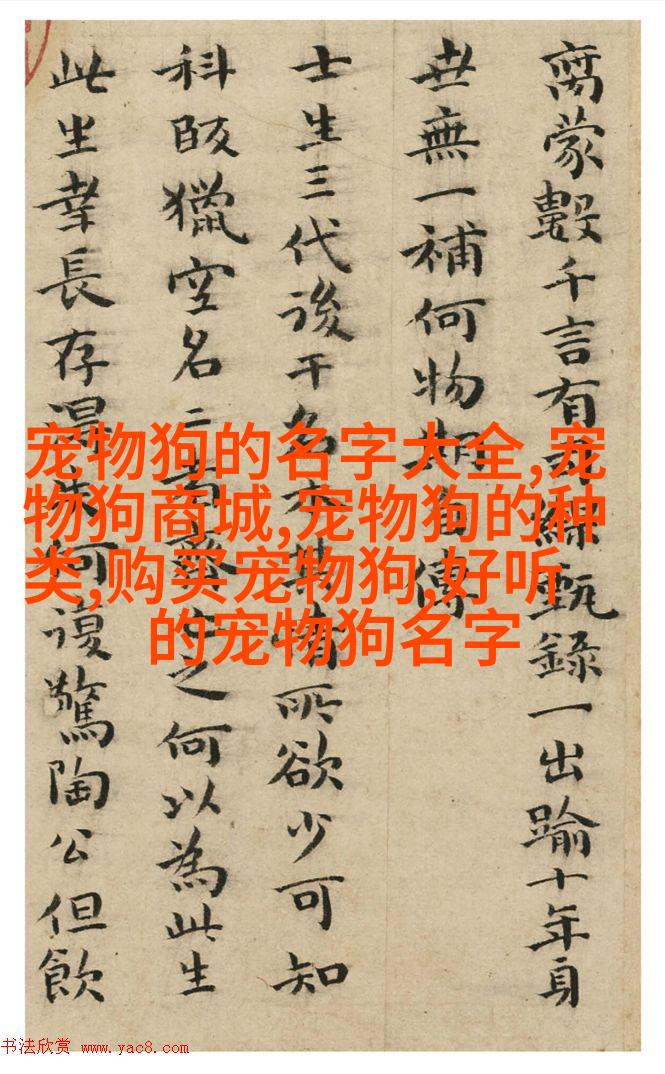 离蒙数千言有
緑甄録一出踰十年身
世無一補何物
傳
士生三代後干名
所欲少可知
科段獵空名二
之何以為此生
此坐幸長存
何復驚陶公但飲
宠物狗的名字大全,宠
物狗商城,宠物狗的种
类,购买宠物狗,好听
的宠物狗名字
书法欣赏 www.yac8.com